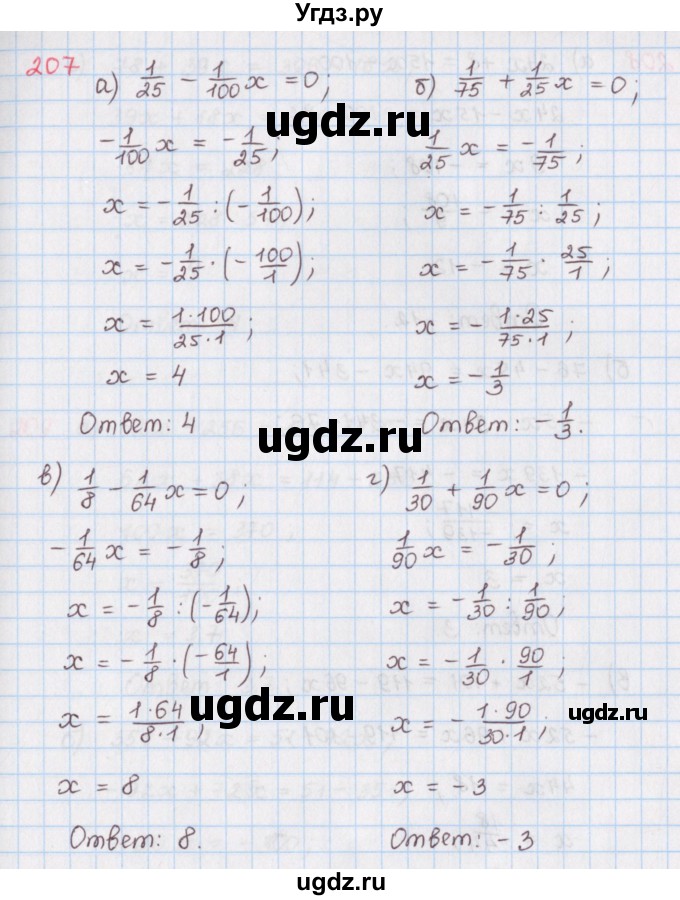 Угдз.ру
207
а) 1/25 − 1/100 x = 0;
−1/100 x = −1/25;
x = −1/25 : (−1/100);
x = −1/25 · (−100/1);
x = 1·100/25·1;
x = 4
Ответ: 4
б) 1/75 + 1/25 x = 0;
1/25 x = −1/75;
x = −1/75 : 1/25;
x = −1/75 · 25/1;
x = − 1·25/75·1;
x = −1/3
Ответ: −1/3.
в) 1/8 − 1/64 x = 0;
−1/64 x = −1/8;
x = −1/8 : (−1/64);
x = −1/8 · (−64/1);
x = 1·64/8·1;
x = 8
Ответ: 8.
г) 1/30 + 1/90 x = 0;
1/90 x = −1/30;
x = −1/30 : 1/90;
x = −1/30 · 90/1;
x = − 1·90/30·1;
x = −3
Ответ: −3
ugdz.ru
ugdz.ru
ugdz.ru
ugdz.ru
ugdz.ru